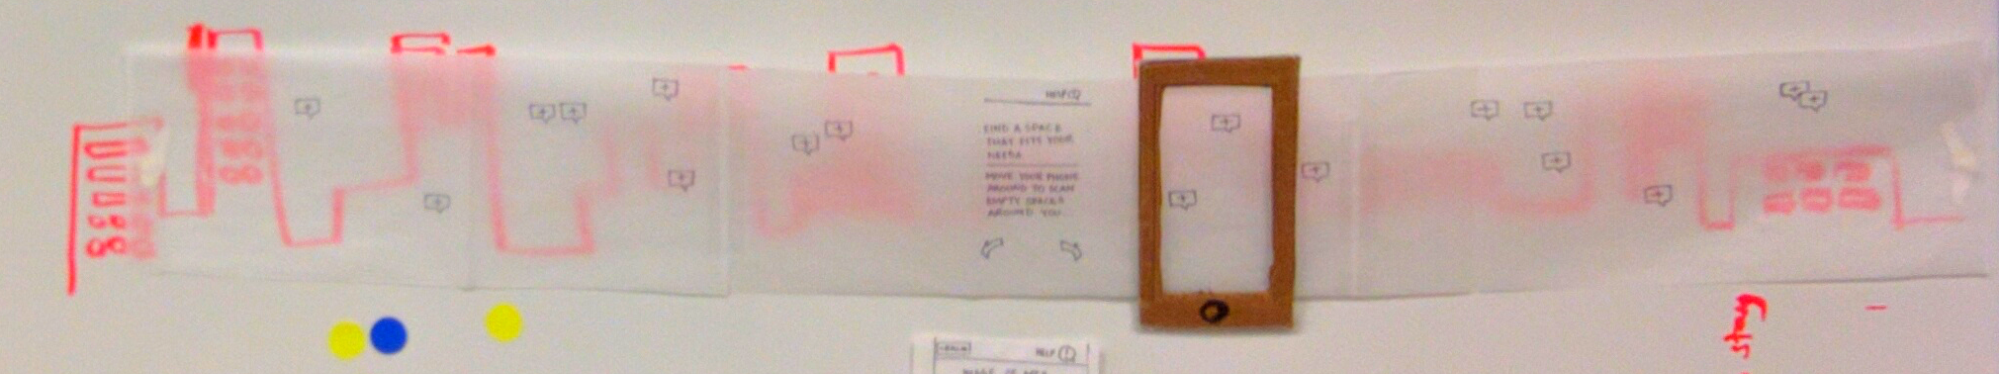 HELP
FIND A SPACE
THAT FITS YOUR
NEEDS
MOVE YOUR PHONE
AROUND TO SCAN
EMPTY SPACES
AROUND YOU
HELP
story